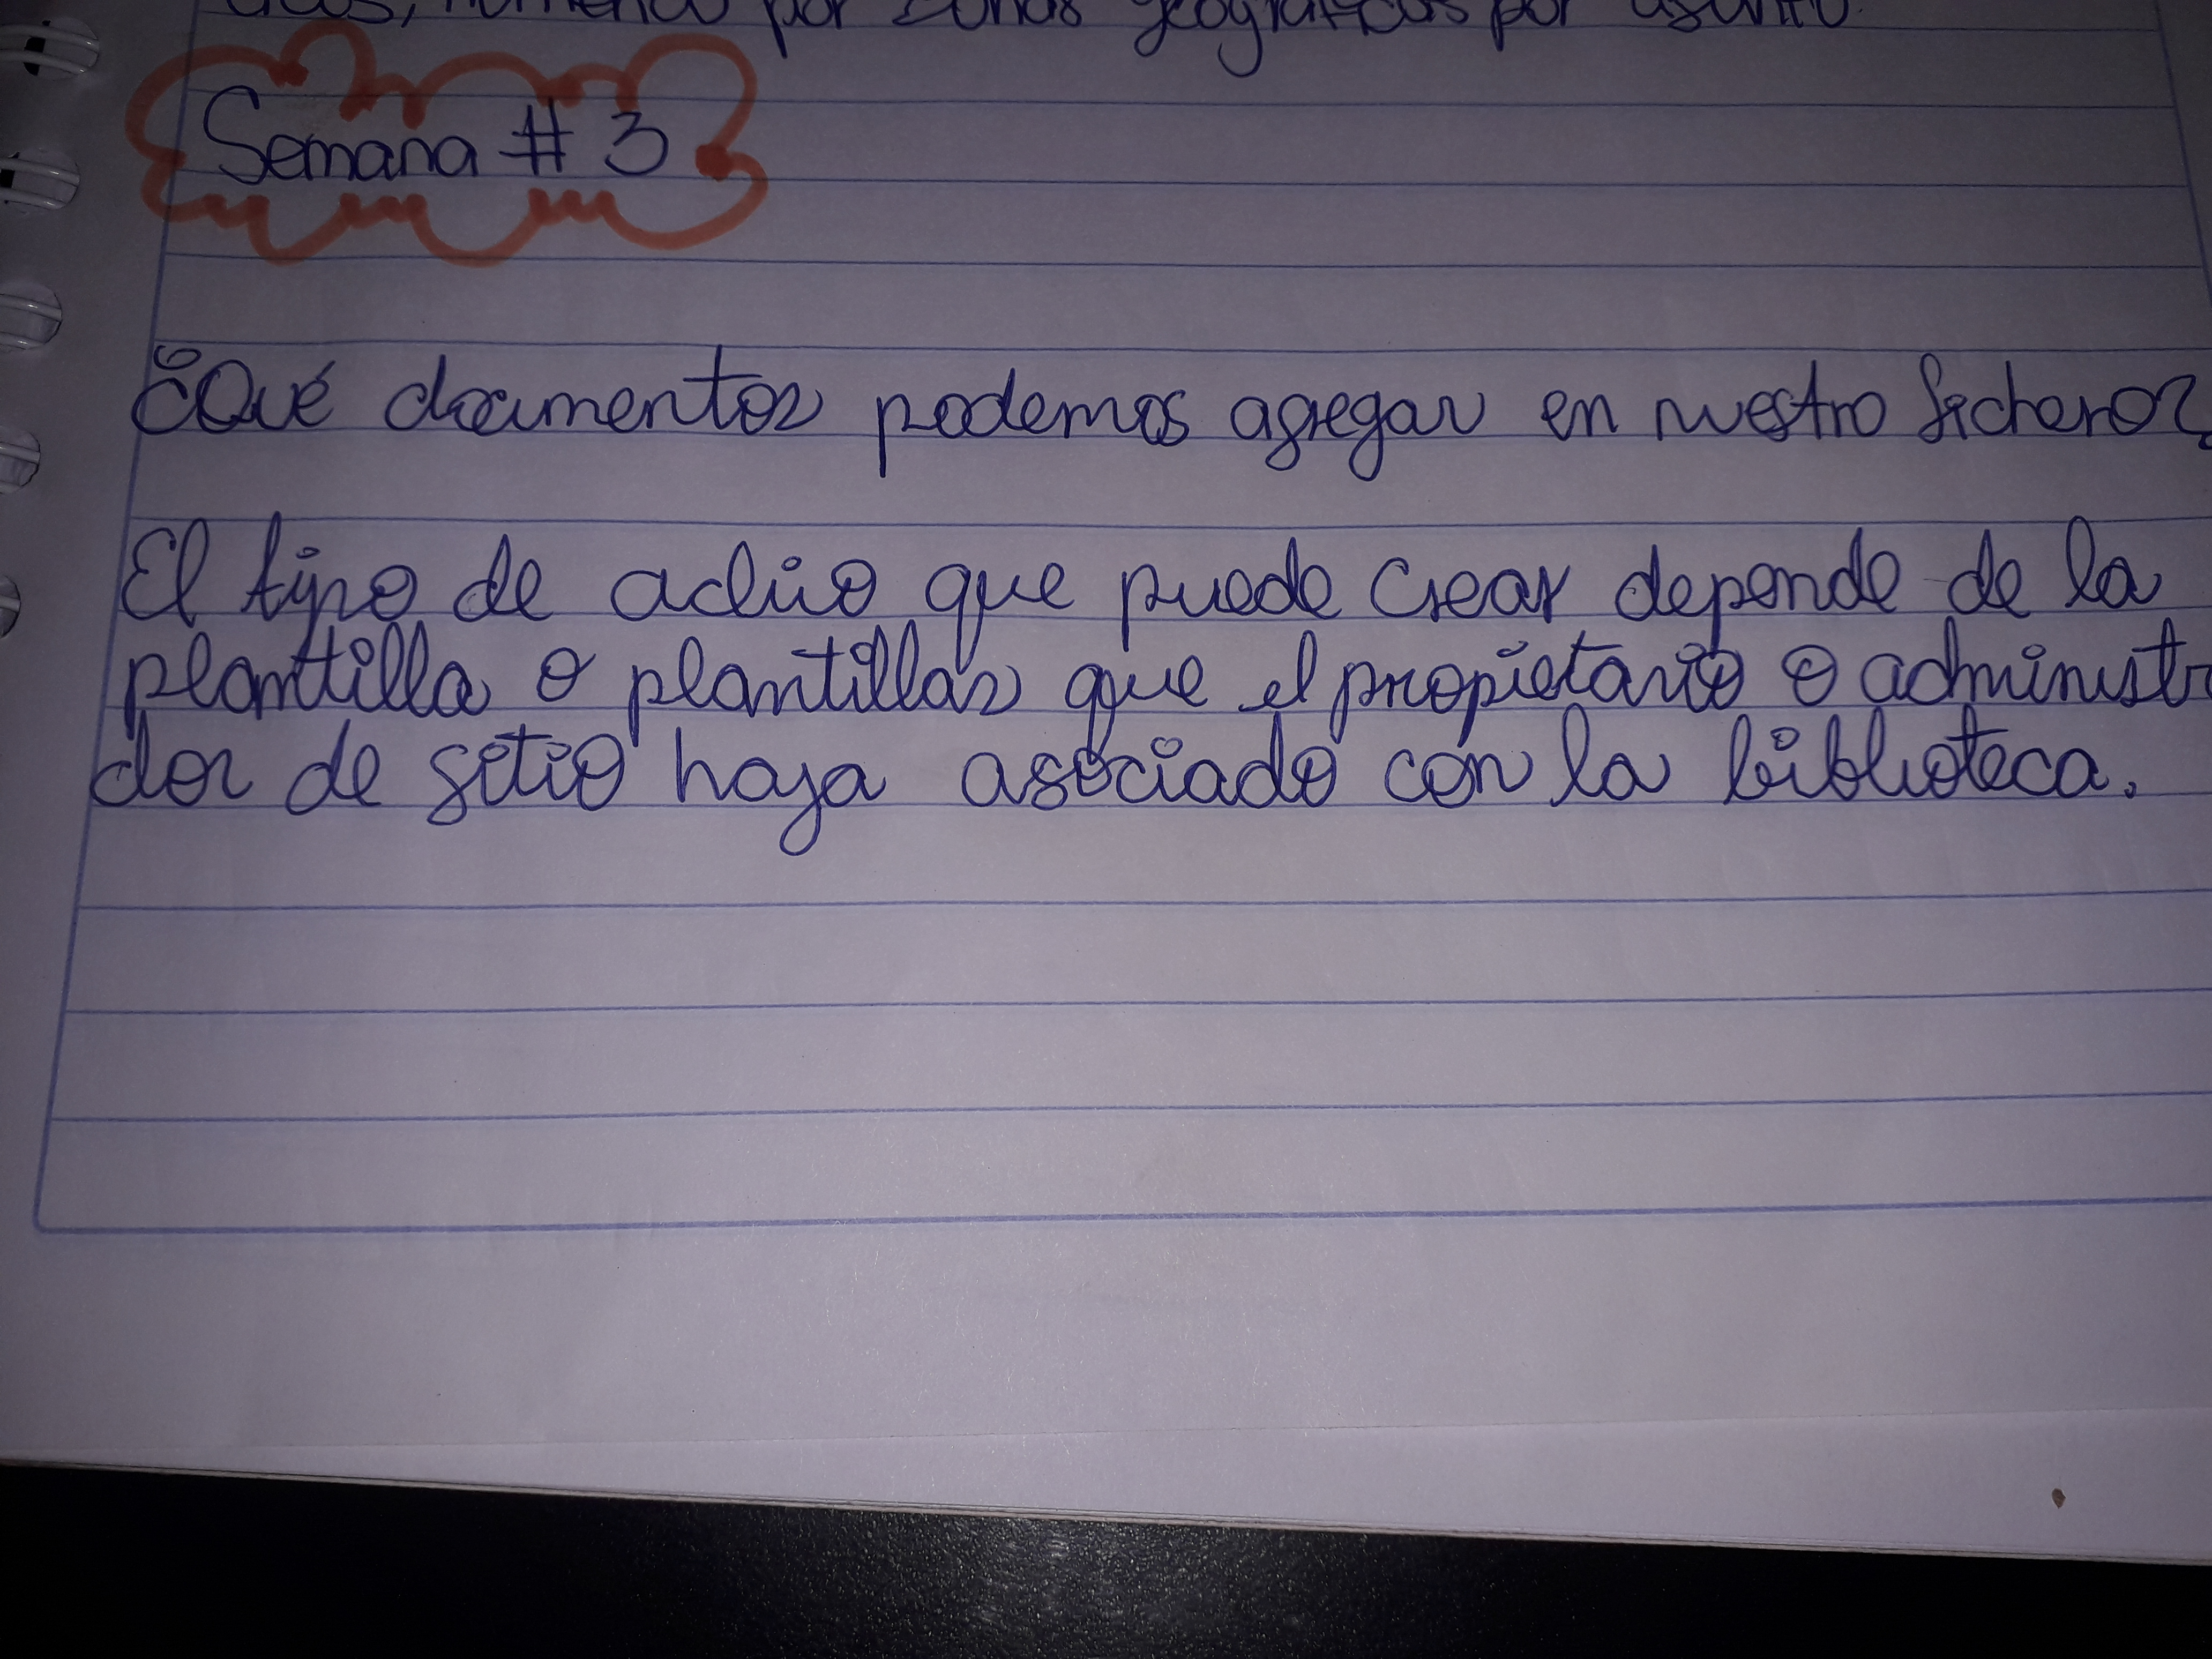 por zonas geográficas por asunto.
Semana # 3
¿Qué documentos podemos agregar en nuestro fichero?
El tipo de que puede crear depende de la
plantilla o plantillas que el propietario o administr
dor de sitio haya asociado con la biblioteca.